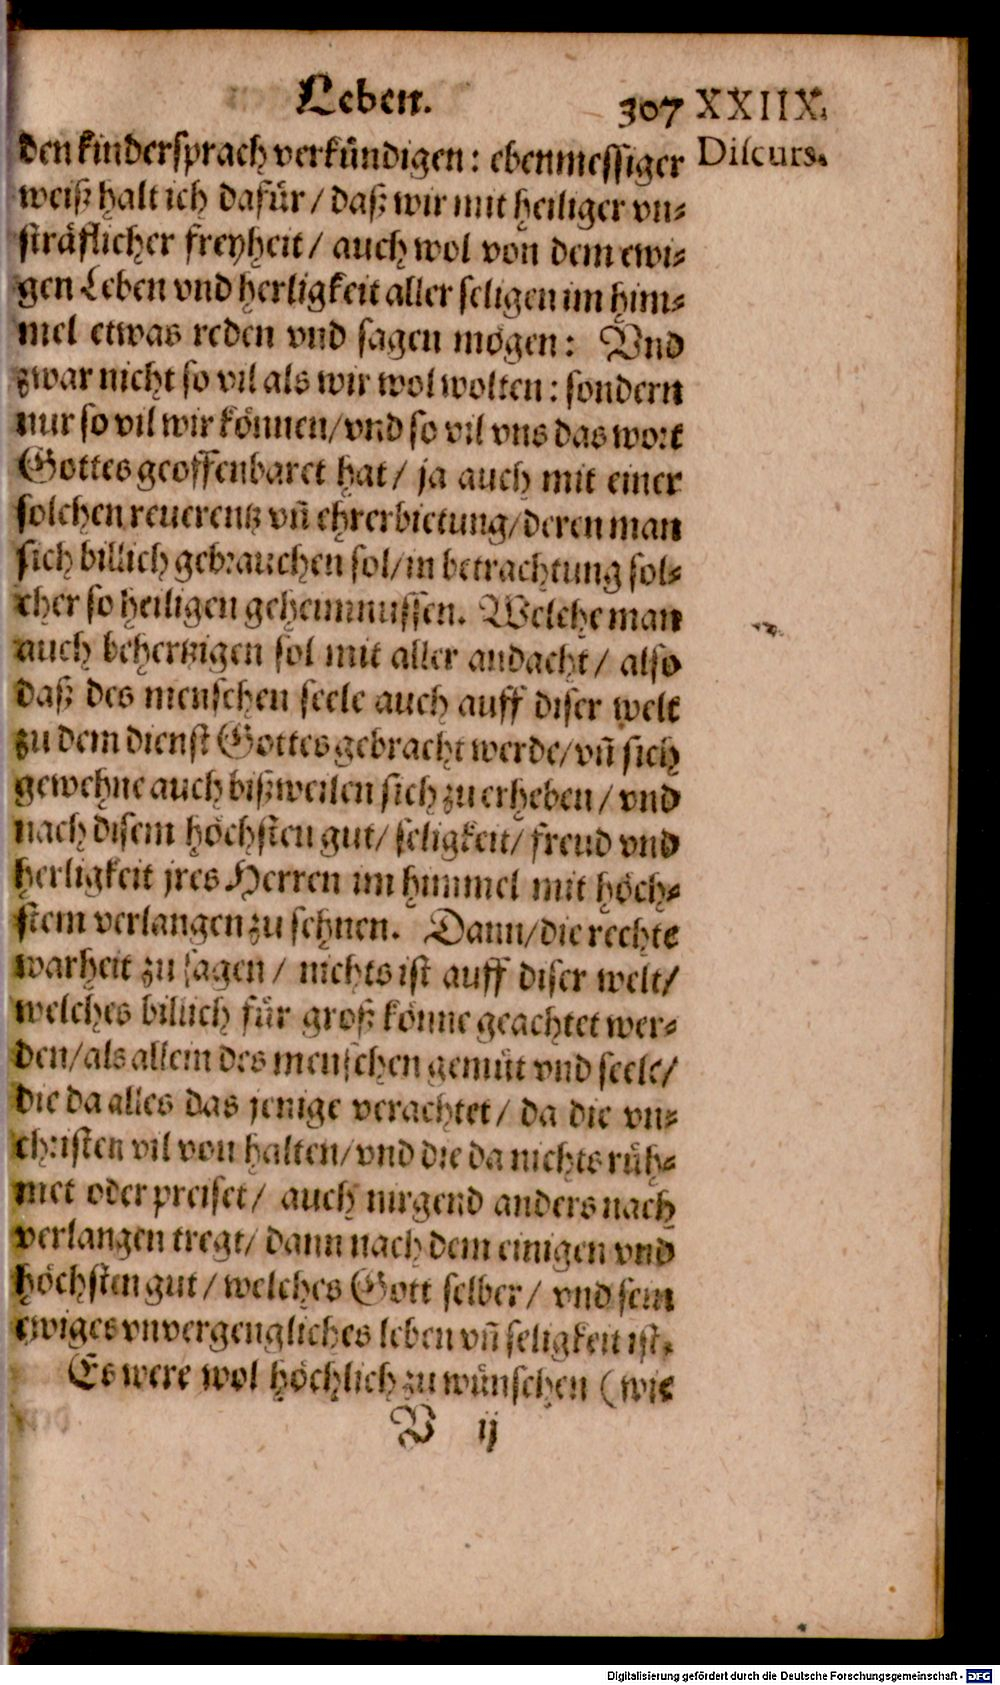 Leben. 307 XXIIX.
den kindersprach verkündigen: ebenmessiger Discurs.
weiß halt ich dafür / daß wir mit heiliger vn⸗
sträflicher freyheit / auch wol von dem ewi⸗
gen Leben vnd herligkeit aller seligen im him⸗
mel etwas reden vnd sagen mögen: Vnd
zwar nicht so vil als wir wol wolten: sondern
nur so vil wir können/vnd so vil vns das wort
Gottes geoffenbaret hat / ja auch mit einer
solchen reuerentz vñ ehrerbietung/deren man
sich billich gebrauchen sol/in betrachtung sol⸗
cher so heiligen geheimnussen. Welche man
auch behertzigen sol mit aller andacht / also
daß des menschen seele auch auff diser welt
zu dem dienst Gottes gebracht werde/vñ sich
gewehne auch bißweilen sich zu erheben / vnd
nach disem höchsten gut/ seligkeit/ freud vnd
herligkeit jres Herren im himmel mit höch⸗
stem verlangen zu sehnen. Dann/die rechte
warheit zu sagen / nichts ist auff diser welt/
welches billich für groß könne geachtet wer⸗
den/als allein des menschen gemüt vnd seele/
die da alles das jenige verachtet / da die vn⸗
christen vil von halten/vnd die da nichts rüh⸗
met oder preiset / auch nirgend anders nach
verlangen tregt/ dann nach dem einigen vnd
höchsten gut / welches Gott selber / vnd sein
ewiges vnvergengliches leben vñ seligkeit ist.
Es were wol höchlich zu wünschen (wie
V ij
Digitalisierung gefördert durch die Deutsche Forschungsgemeinschaft - DFG